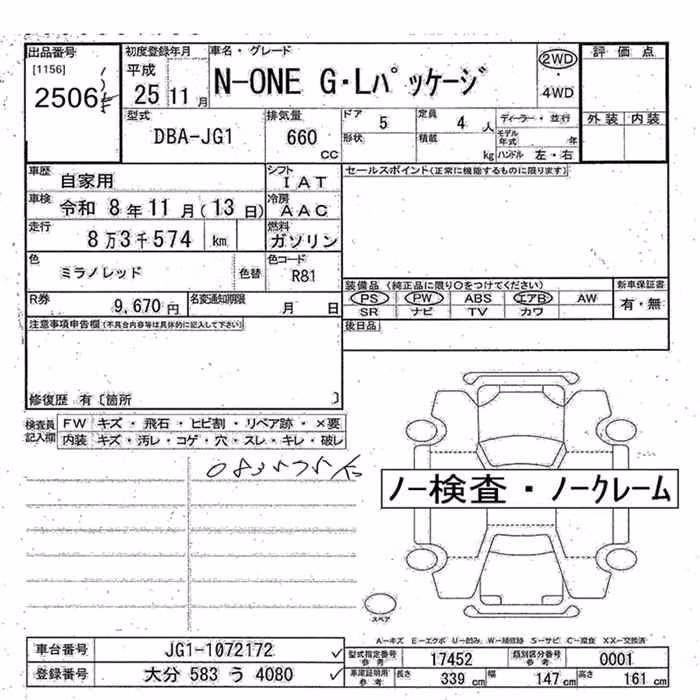 出品番号 初度登録年月 車名・グレード 評価点
[1156] 平成 N-ONE G・Lパッケージ 2WD
2506 25 11月 4WD
型式 排気量 ドア 5 定員 4人 ディーラー・並行 外装 内装
DBA-JG1 660 cc 形状 積載 kg モデル年式 年
ハンドル 左・右
車歴 自家用 シフト IAT セールスポイント(正常に機能するものに限ります)
車検 令和 8年11月(13日) 冷房 AAC
走行 8万3千574 km 燃料 ガソリン
色 ミラノレッド 色替 色コード R81
装備品(純正品に限り○をつけてください) 新車保証書
R券 9,670円 名変通知期限 月 日 PS PW ABS エアB AW 有・無
SR ナビ TV カワ
注意事項申告欄(不具合内容等は具体的に記入して下さい) 後日品
修復歴 有〔箇所 〕
検査員記入欄 FW キズ・飛石・ヒビ割・リペア跡・×要
内装 キズ・汚レ・コゲ・穴・スレ・キレ・破レ
083575K
ノー検査・ノークレーム
スペア
A-キズ E-エクボ U-凹み W-補修跡 S-サビ C-腐食 XX-交換済
車台番号 JG1-1072172 型式指定番号 参考 17452 類別区分番号 参考 0001
登録番号 大分 583 う 4080 車庫証明用 参考 長さ 339 cm 幅 147 cm 高さ 161 cm